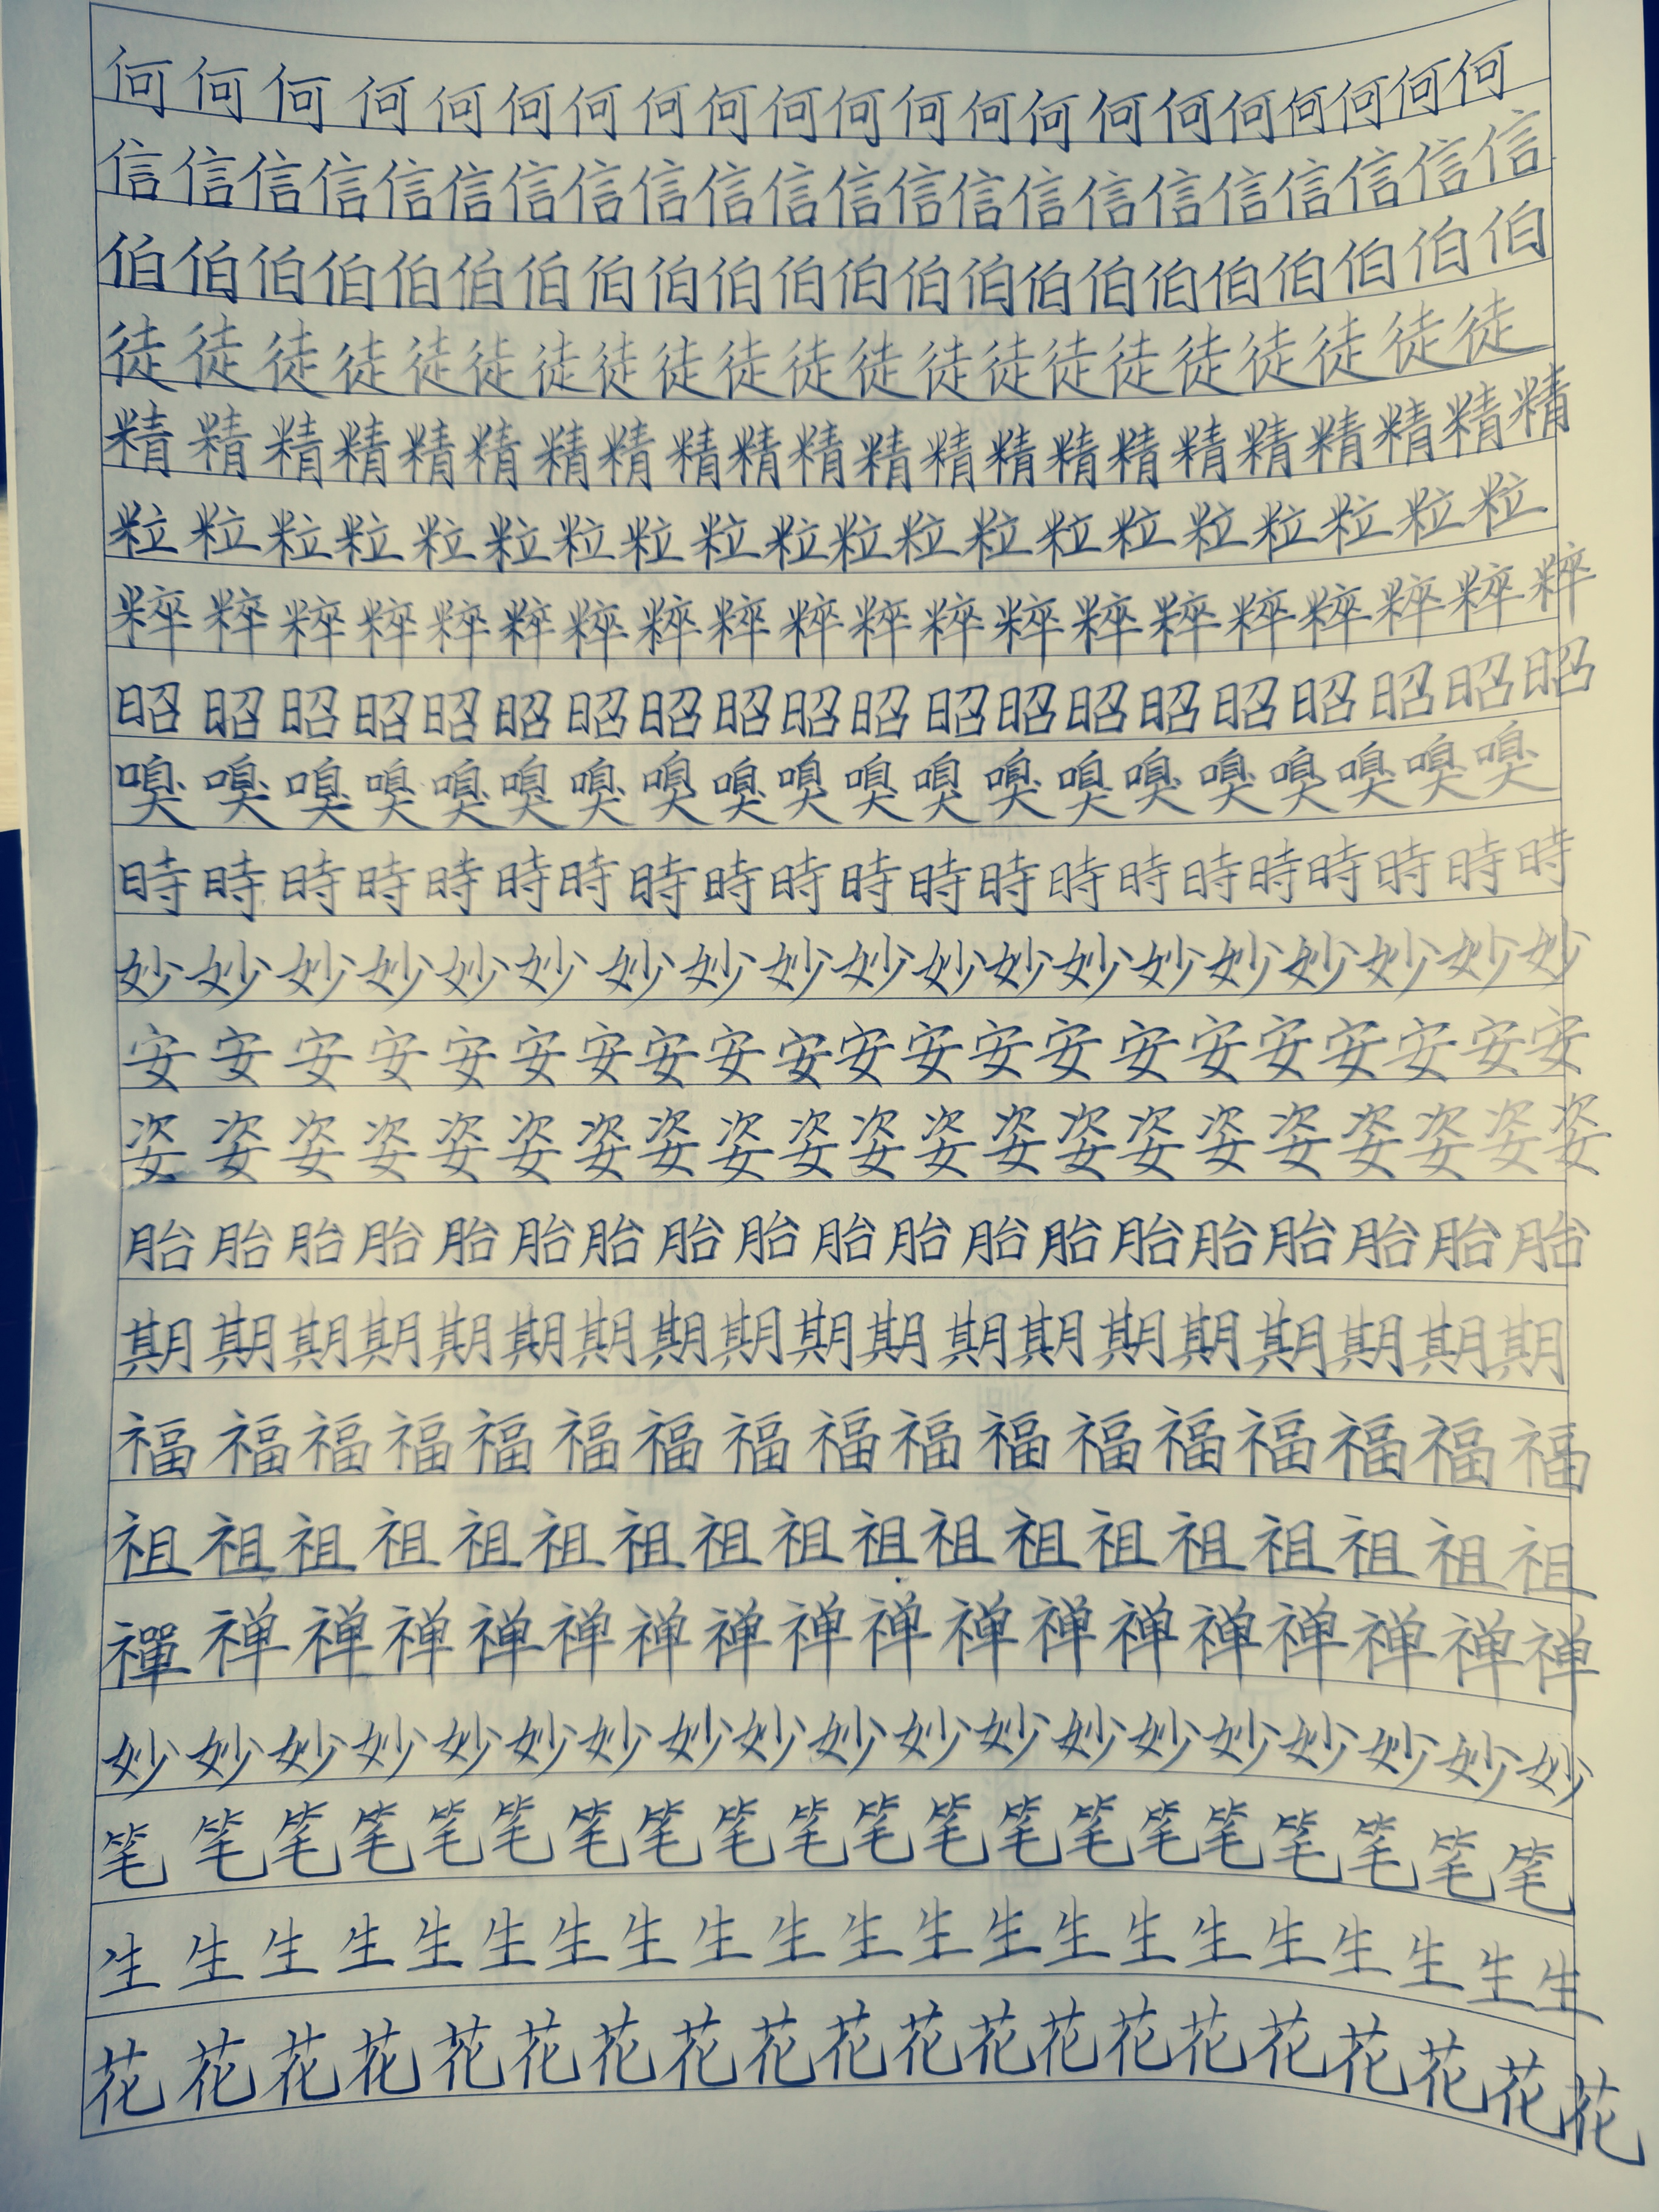 何何何何何何何何何何何何何何何何何何何何何
信信信信信信信信信信信信信信信信信信信信信信
伯伯伯伯伯伯伯伯伯伯伯伯伯伯伯伯伯伯伯伯伯伯
徒徒徒徒徒徒徒徒徒徒徒徒徒徒徒徒徒徒徒徒徒
精精精精精精精精精精精精精精精精精精精精精精
粒粒粒粒粒粒粒粒粒粒粒粒粒粒粒粒粒粒粒粒
粹粹粹粹粹粹粹粹粹粹粹粹粹粹粹粹粹粹粹粹
昭昭昭昭昭昭昭昭昭昭昭昭昭昭昭昭昭昭昭昭
嗅嗅嗅嗅嗅嗅嗅嗅嗅嗅嗅嗅嗅嗅嗅嗅嗅嗅嗅嗅
時時時時時時時時時時時時時時時時時時時時時
妙妙妙妙妙妙妙妙妙妙妙妙妙妙妙妙妙妙妙
安安安安安安安安安安安安安安安安安安安安安
姿姿姿姿姿姿姿姿姿姿姿姿姿姿姿姿姿姿姿姿姿
胎胎胎胎胎胎胎胎胎胎胎胎胎胎胎胎胎胎胎
期期期期期期期期期期期期期期期期期期期
福福福福福福福福福福福福福福福福福
祖祖祖祖祖祖祖祖祖祖祖祖祖祖祖祖祖祖
禪禅禅禅禅禅禅禅禅禅禅禅禅禅禅禅禅禅
妙妙妙妙妙妙妙妙妙妙妙妙妙妙妙妙妙妙妙
笔笔笔笔笔笔笔笔笔笔笔笔笔笔笔笔笔笔笔笔
生生生生生生生生生生生生生生生生生生生生生
花花花花花花花花花花花花花花花花花花花花